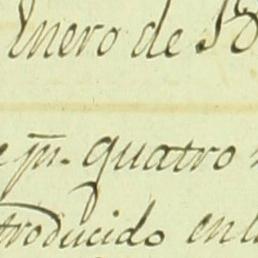 Enero de 18
e pr. quatro
troducido en l